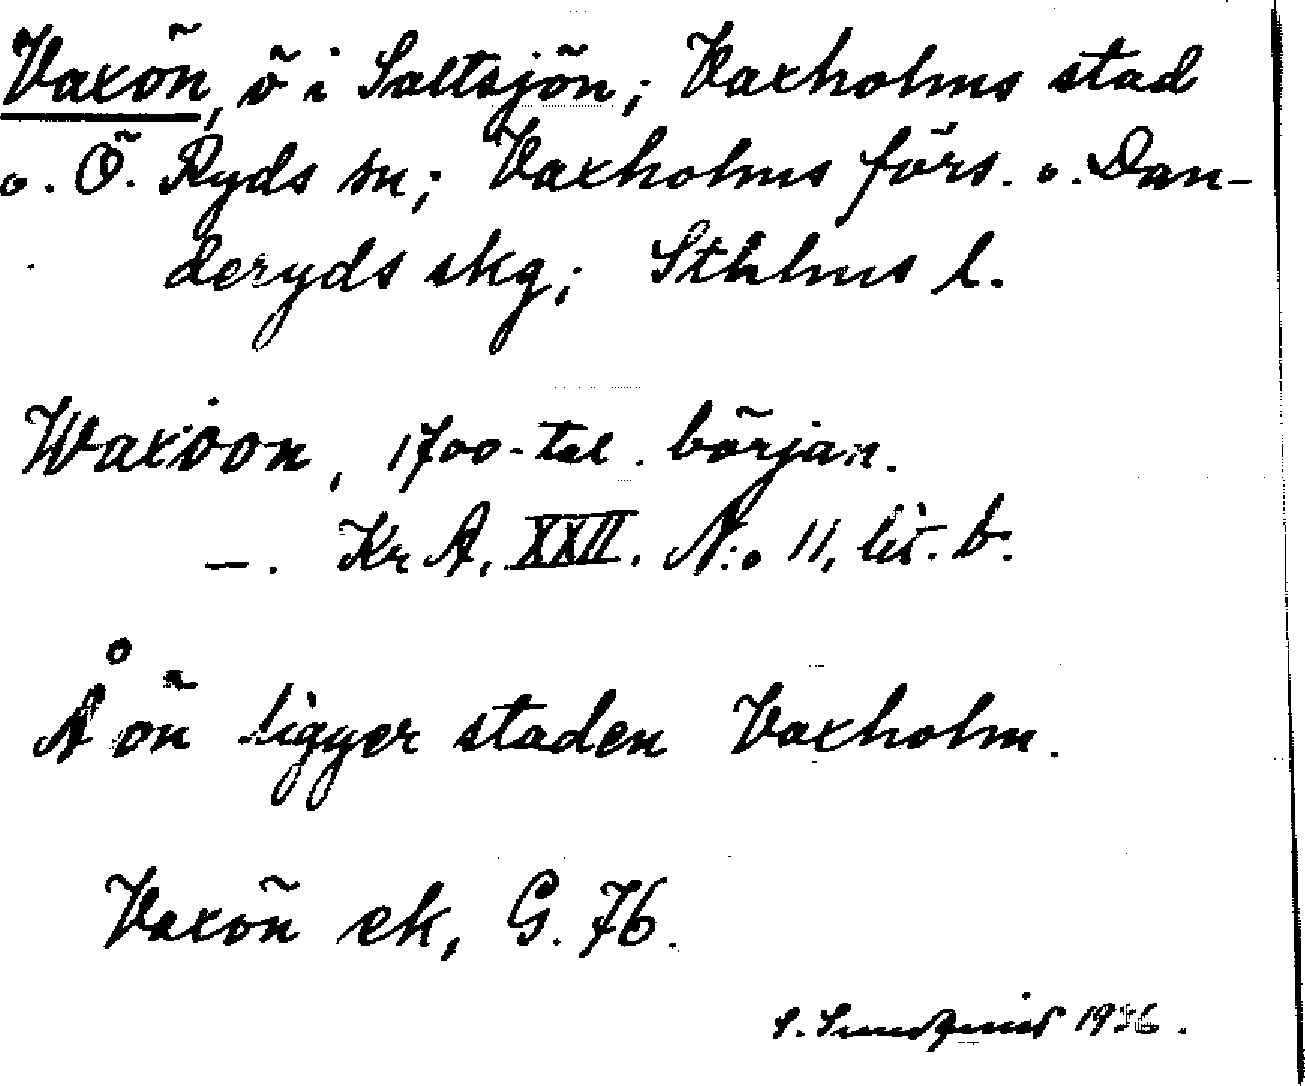 Vaxön, ö i Saltsjön; Vaxholms stad
o. Ö. Ryds sn; Vaxholms förs. o. Dan-
deryds skg; Sthlms l.
Waxöon, 1700-tal. början.
—. Kr A. XXII. N:o 11, lit. b.
Å ön ligger staden Vaxholm.
Vaxön ek, G. 76.
S. Sundqvist 1936.